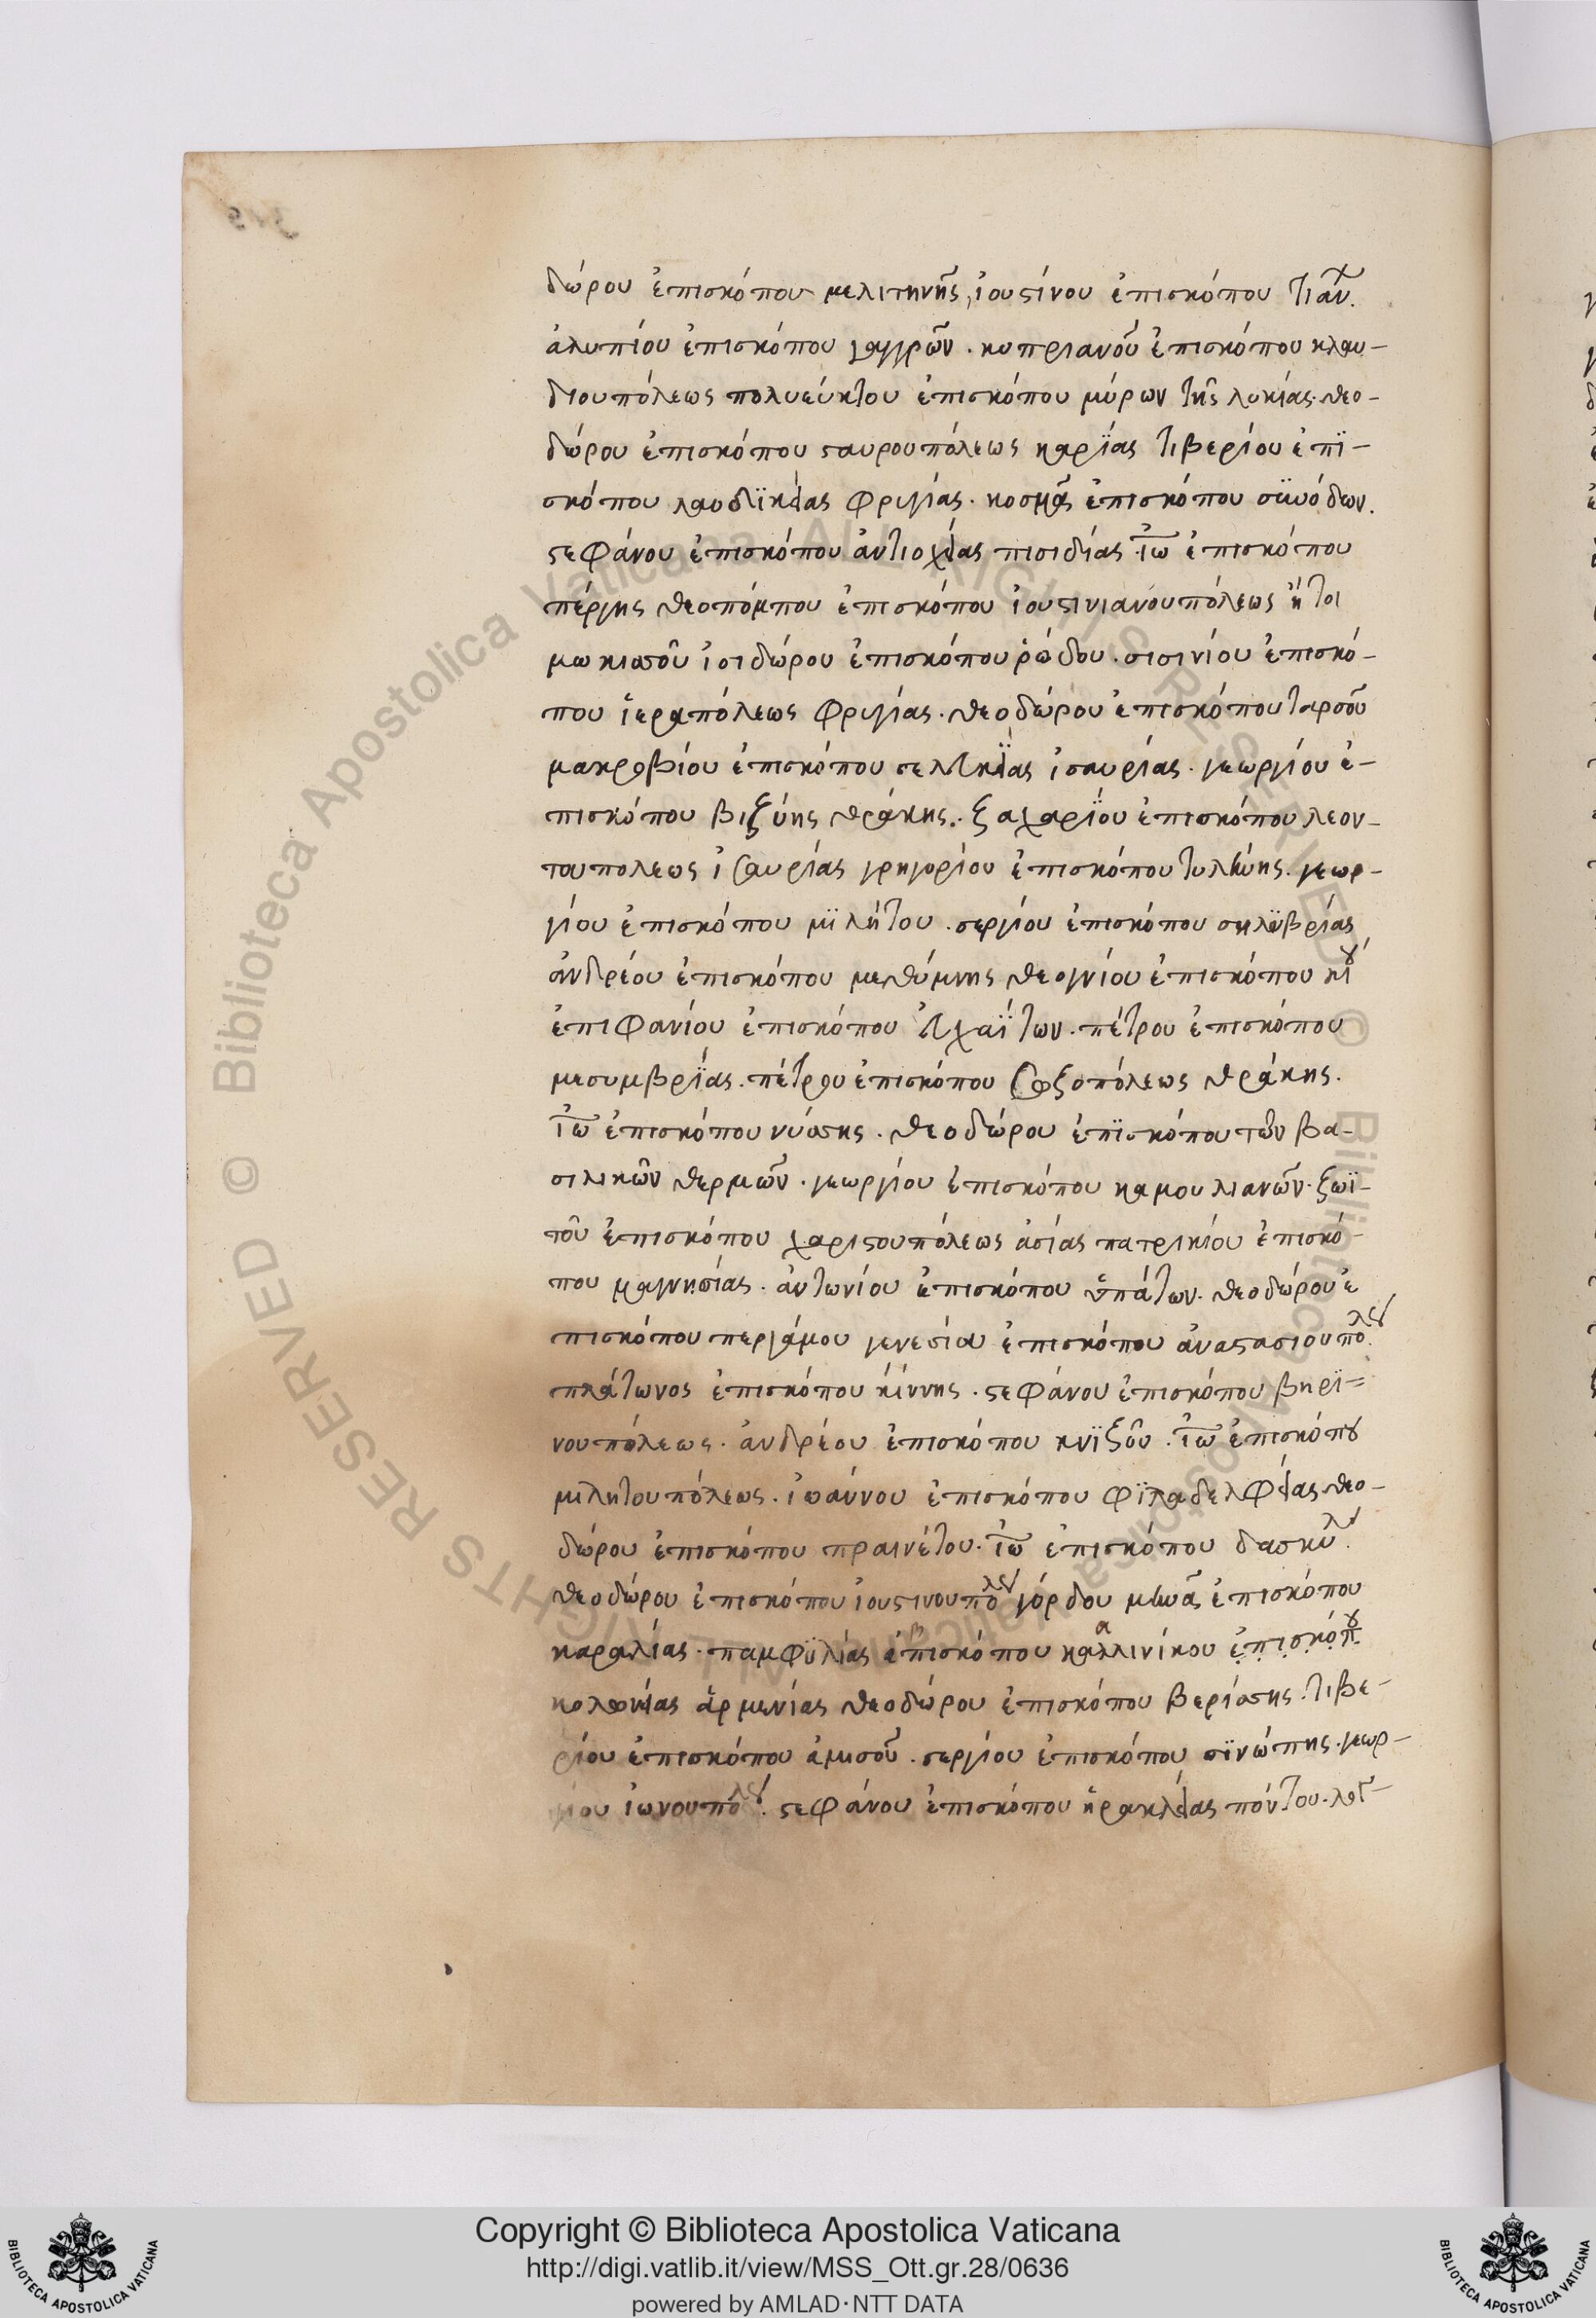 δώρου ἐπισκόπου μελιτηνῆς, ἰουστίνου ἐπισκόπου τιάν.
ἀλυπίου ἐπισκόπου γαγγρῶν. κυπριανοῦ ἐπισκόπου κλαυ-
διουπόλεως πολυεύκτου ἐπισκόπου μύρων τῆς λυκίας. θεο-
δώρου ἐπισκόπου σταυρουπόλεως καρΐας τιβερίου ἐπϊ-
σκόπου λαοδϊκείας φριγίας. κοσμᾶ ἐπισκόπου σϋνόδων.
στεφάνου ἐπισκόπου ἀντιοχείας πισιδίας ἰω ἐπισκόπου
πέργης θεοπόμπου ἐπισκόπου ἰουστινιανουπόλεως ἤτοι
μωκισοῦ ἰσιδώρου ἐπισκόπου ῥώδου. σισινίου ἐπισκό-
που ἱεραπόλεως φριγίας. θεοδώρου ἐπισκόπου ταρσοῦ
μακροβίου ἐπισκόπου σελευκείας ἰσαυρίας. γεωργίου ἐ-
πισκόπου βιζύης θράκης. ζαχαρΐου ἐπισκόπου λεον-
τουπολεως ἰσαυρίας γρηγορίου ἐπισκόπου γεωρ-
γίου ἐπισκόπου μϊλήτου. σεργίου ἐπισκόπου σηλϋβρίας
ἀνδρέου ἐπισκόπου μεθύμνης θεογνίου ἐπισκόπου κίου
ἐπιφανίου ἐπισκόπου εὐχαΐτων. πέτρου ἐπισκόπου
μεσυμβρΐας. πέτρου ἐπισκόπου σοζοπόλεως θράκης.
ἰω ἐπισκόπου νύσης. θεοδώρου ἐπϊσκόπου τῶν βα-
σιλικῶν θερμῶν. γεωργίου ἐπισκόπου καμουλιανῶν. ζωϊ-
τοῦ ἐπισκόπου χαριστουπόλεως ἀσίας πατρικίου ἐπισκό-
που μαγνησίας. ἀντωνίου ἐπισκόπου ὑπάτων. θεοδώρου ἐ
πισκόπου περγάμου γενεσίου ἐπισκόπου ἀναστασιουπόλε
πλάτωνος ἐπισκόπου κίννης. στεφάνου ἐπισκόπου βηρϊ=
νουπόλεως. ἀνδρέου ἐπισκόπου κνϊζοῦ. ἰω ἐπισκόπου
μιλητουπόλεως. ἰωάννου ἐπισκόπου φϊλαδελφείας θεο-
δώρου ἐπισκόπου πραινέτου. ἰω ἐπισκόπου δασκυλ.
θεοδώρου ἐπισκόπου ἰουστινουπολε γόρδου μηνᾶ ἐπισκόπου
καραλίας. παμφϋλίας ἐπισκόπου καλλινίκου ἐπισκόπου
κολωνείας ἀρμενίας θεοδώρου ἐπισκόπου βερίσσης. τιβε-
ρίου ἐπισκόπου ἀμισοῦ. σεργίου ἐπισκόπου σϊνώπης. γεωρ-
γίου ἰωνουπολε. στεφάνου ἐπισκόπου ἡρακλείας πόντου.
Copyright © Biblioteca Apostolica Vaticana
http://digi.vatlib.it/view/MSS_Ott.gr.28/0636
powered by AMLAD·NTT DATA
BIBLIOTECA APOSTOLICA VATICANA
BIBLIOTECA APOSTOLICA VATICANA